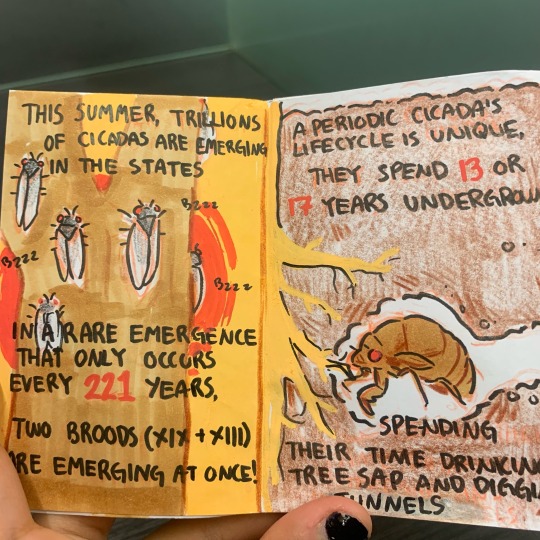 THIS SUMMER, TRILLIONS
OF CICADAS ARE EMERGING
IN THE STATES
Bzzz
Bzzz
Bzzz
IN A RARE EMERGENCE
THAT ONLY OCCURS
EVERY 221 YEARS,
TWO BROODS (XIX + XIII)
ARE EMERGING AT ONCE!
A PERIODIC CICADA'S
LIFECYCLE IS UNIQUE,
THEY SPEND 13 OR
17 YEARS UNDERGROUN
SPENDING
THEIR TIME DRINKING
TREE SAP AND DIGGI
TUNNELS